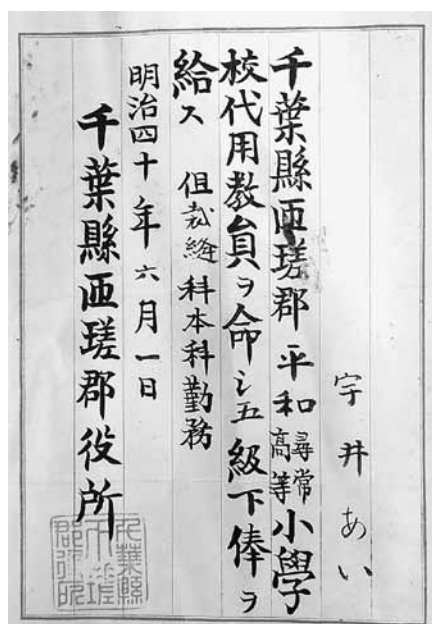 宇井あい
千葉縣匝瑳郡平和尋常高等小學
校代用教員ヲ命シ五級下俸ヲ
給ス 但裁縫科本科勤務
明治四十年六月一日
千葉縣匝瑳郡役所